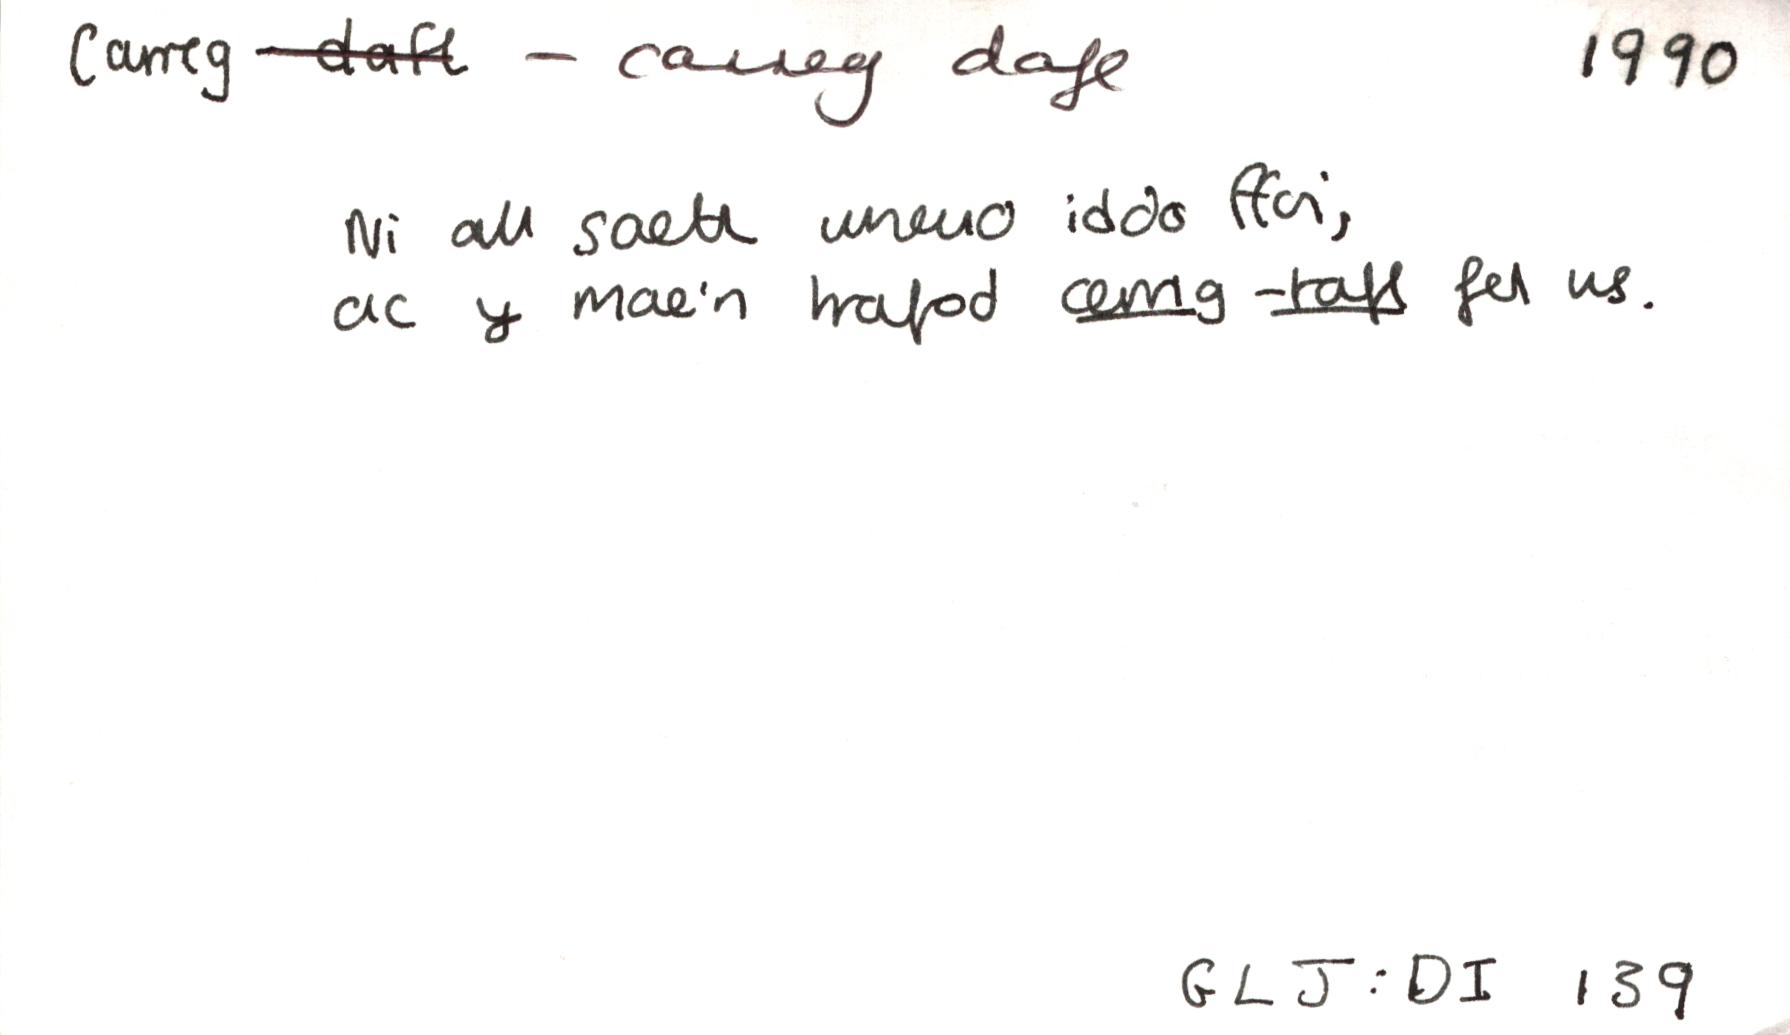 Carreg daft - carreg dafl 1990
Ni all saeth wneud iddo ffoi,
ac y mae'n trafod cerrig-tafl fel us.
GLJ:DI 139